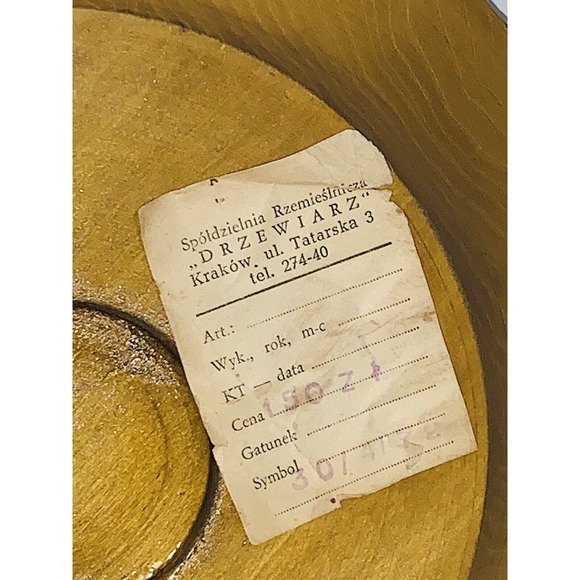 Spółdzielnia Rzemieślnicza
„DRZEWIARZ"
Kraków, ul. Tatarska 3
tel. 274-40
Art.:
Wyk., rok, m-c
KT — data
Cena 150 Zł
Gatunek
Symbol